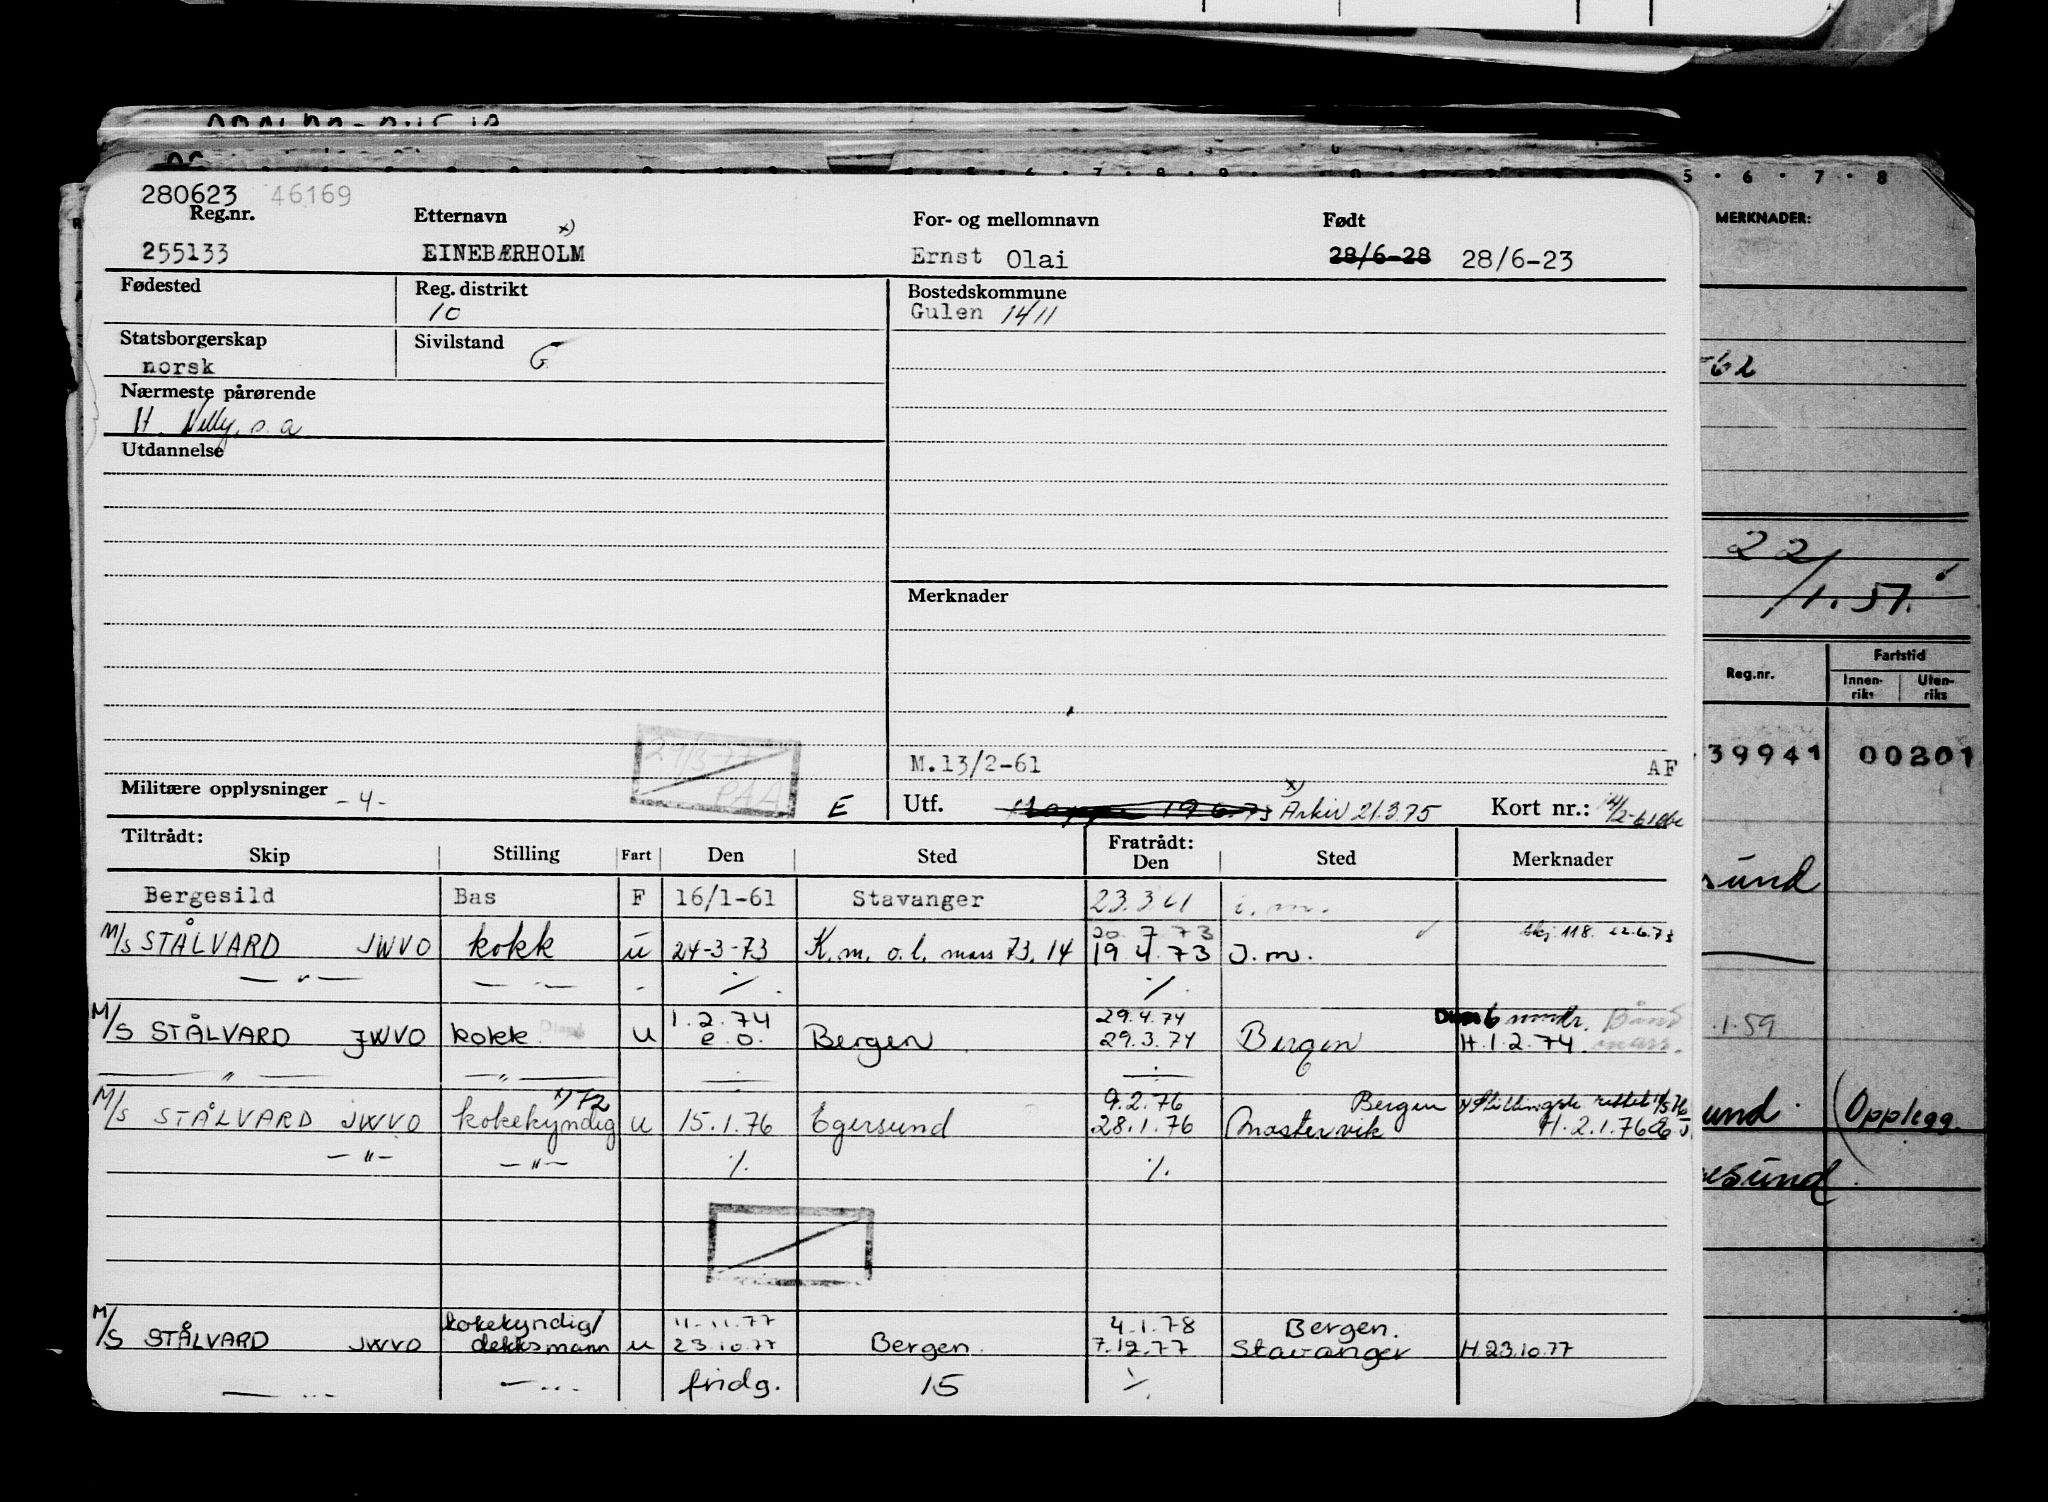 280623 46169
Reg.nr. Etternavn For- og mellomnavn Født
x)
255133 EINEBÆRHOLM Ernst Olai 28/6-28 28/6-23
Fødested Reg. distrikt Bostedskommune
10 Gulen 1411
Statsborgerskap Sivilstand
norsk G
Nærmeste pårørende
H. Nelly, s. a
Utdannelse
Merknader
29/3-77
PAA
M.13/2-61 AF
Militære opplysninger -4- E Utf. 19.6.73 x) Arkiv 21.3.75 Kort nr.:
Tiltrådt: Fratrådt:
Skip Stilling Fart Den Sted Den Sted Merknader
Bergesild Bas F 16/1-61 Stavanger 23.3.61 i. m.
20. 7 73 skj. 118. 22.6.73
M/S STÅLVARD JWVO kokk u 24-3-73 K. m. o. l. mars 73. 14 19 4. 73 J. m.
— " — — " — - ./. ./.
1. 2. 74 29.4.74 6 mndr.
M/S STÅLVARD JWVO kokk u e. o. Bergen 29.3.74 Bergen H. 1. 2. 74.
— " — — " — ÷ ÷
x) 72 9.2.76 Bergen
M/S STÅLVARD JWVO kokekyndig u 15.1.76 Egersund 28.1.76 Mastrevik H. 2.1.76
— " — — " — ./. ./.
kokekyndig/ 11-11.77 4.1.78 Bergen.
M/S STÅLVARD JWVO dekksmann u 23.10.77 Bergen. 7.12.77 Stavanger H 23.10.77
— " — — " — fridg. 15 ./.
5 · 6 · 7 · 8
MERKNADER:
-62
22/1.57.
Reg.nr. Fartstid
Innen-riks Uten-riks
39941 00201
sund
.1.59
sund. (Opplegg.
esund.